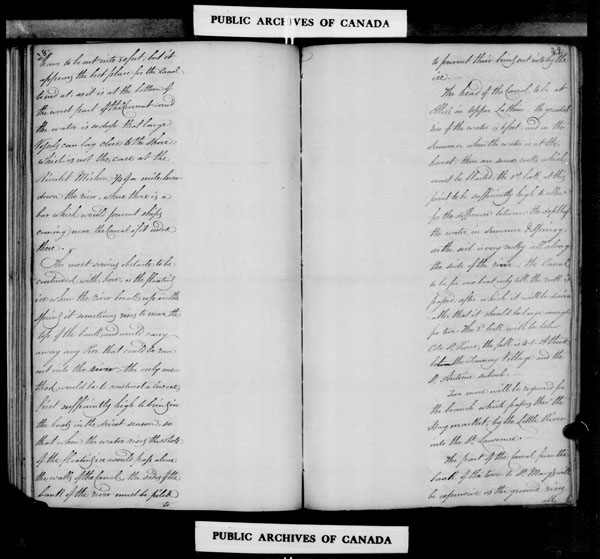 PUBLIC ARCHIVES OF CANADA
28
have to be cut into 30 feet, but it
appears the best place for the Canal
to end at, as it is at the bottom of
the worst part of the Current and
the water is so deep that large
Vessels can lay close to the shore;
which is not the case at the
Rivulet Michon 3/4 of a mile lower
down the river, where there is a
bar which would prevent ships
coming near the Canal if it ended
there.
The most serious obstacle to be
contended with here, is the floating
ice when the river breaks up in the
Spring it sometimes rises to near the
top of the bank and would carry
away any Pier that could be run
out into the river. the only me
thod would be to construct a low
first sufficiently high to bring in
the boats in the driest season, so
that when the water rises the whole
of the floating ice would pass above
the walls of the Canal, the sides of the
bank of the river must be piled
to
29
to prevent their being cut into by the
ice.
The head of the Canal to be at
in upper Lachine, the greatest
rise of the water is 6 feet, and in the
Summer when the water is at the
lowest there are some rocks which
must be blasted, the 1st lock at this
point to be sufficiently high to allow
for the difference between the depth of
the water in summer & Spring,
as the soil is very rocky all along
the side of the river. the Canal
to be for one boat only till the rock is
passed, after which it will be advis
able that it should be large enough
for two. The 2d lock will be below
Cote St. Pierre, the fall is
between the Tannery Village and the
St. Antoine suburb.
Two more will be required for
the branch which passes thro' the
Haymarket, by the Little River
into the St. Lawrence.
The part of the Canal from the
back of the town to St. Mary's will
be expensive as the ground rises
PUBLIC ARCHIVES OF CANADA